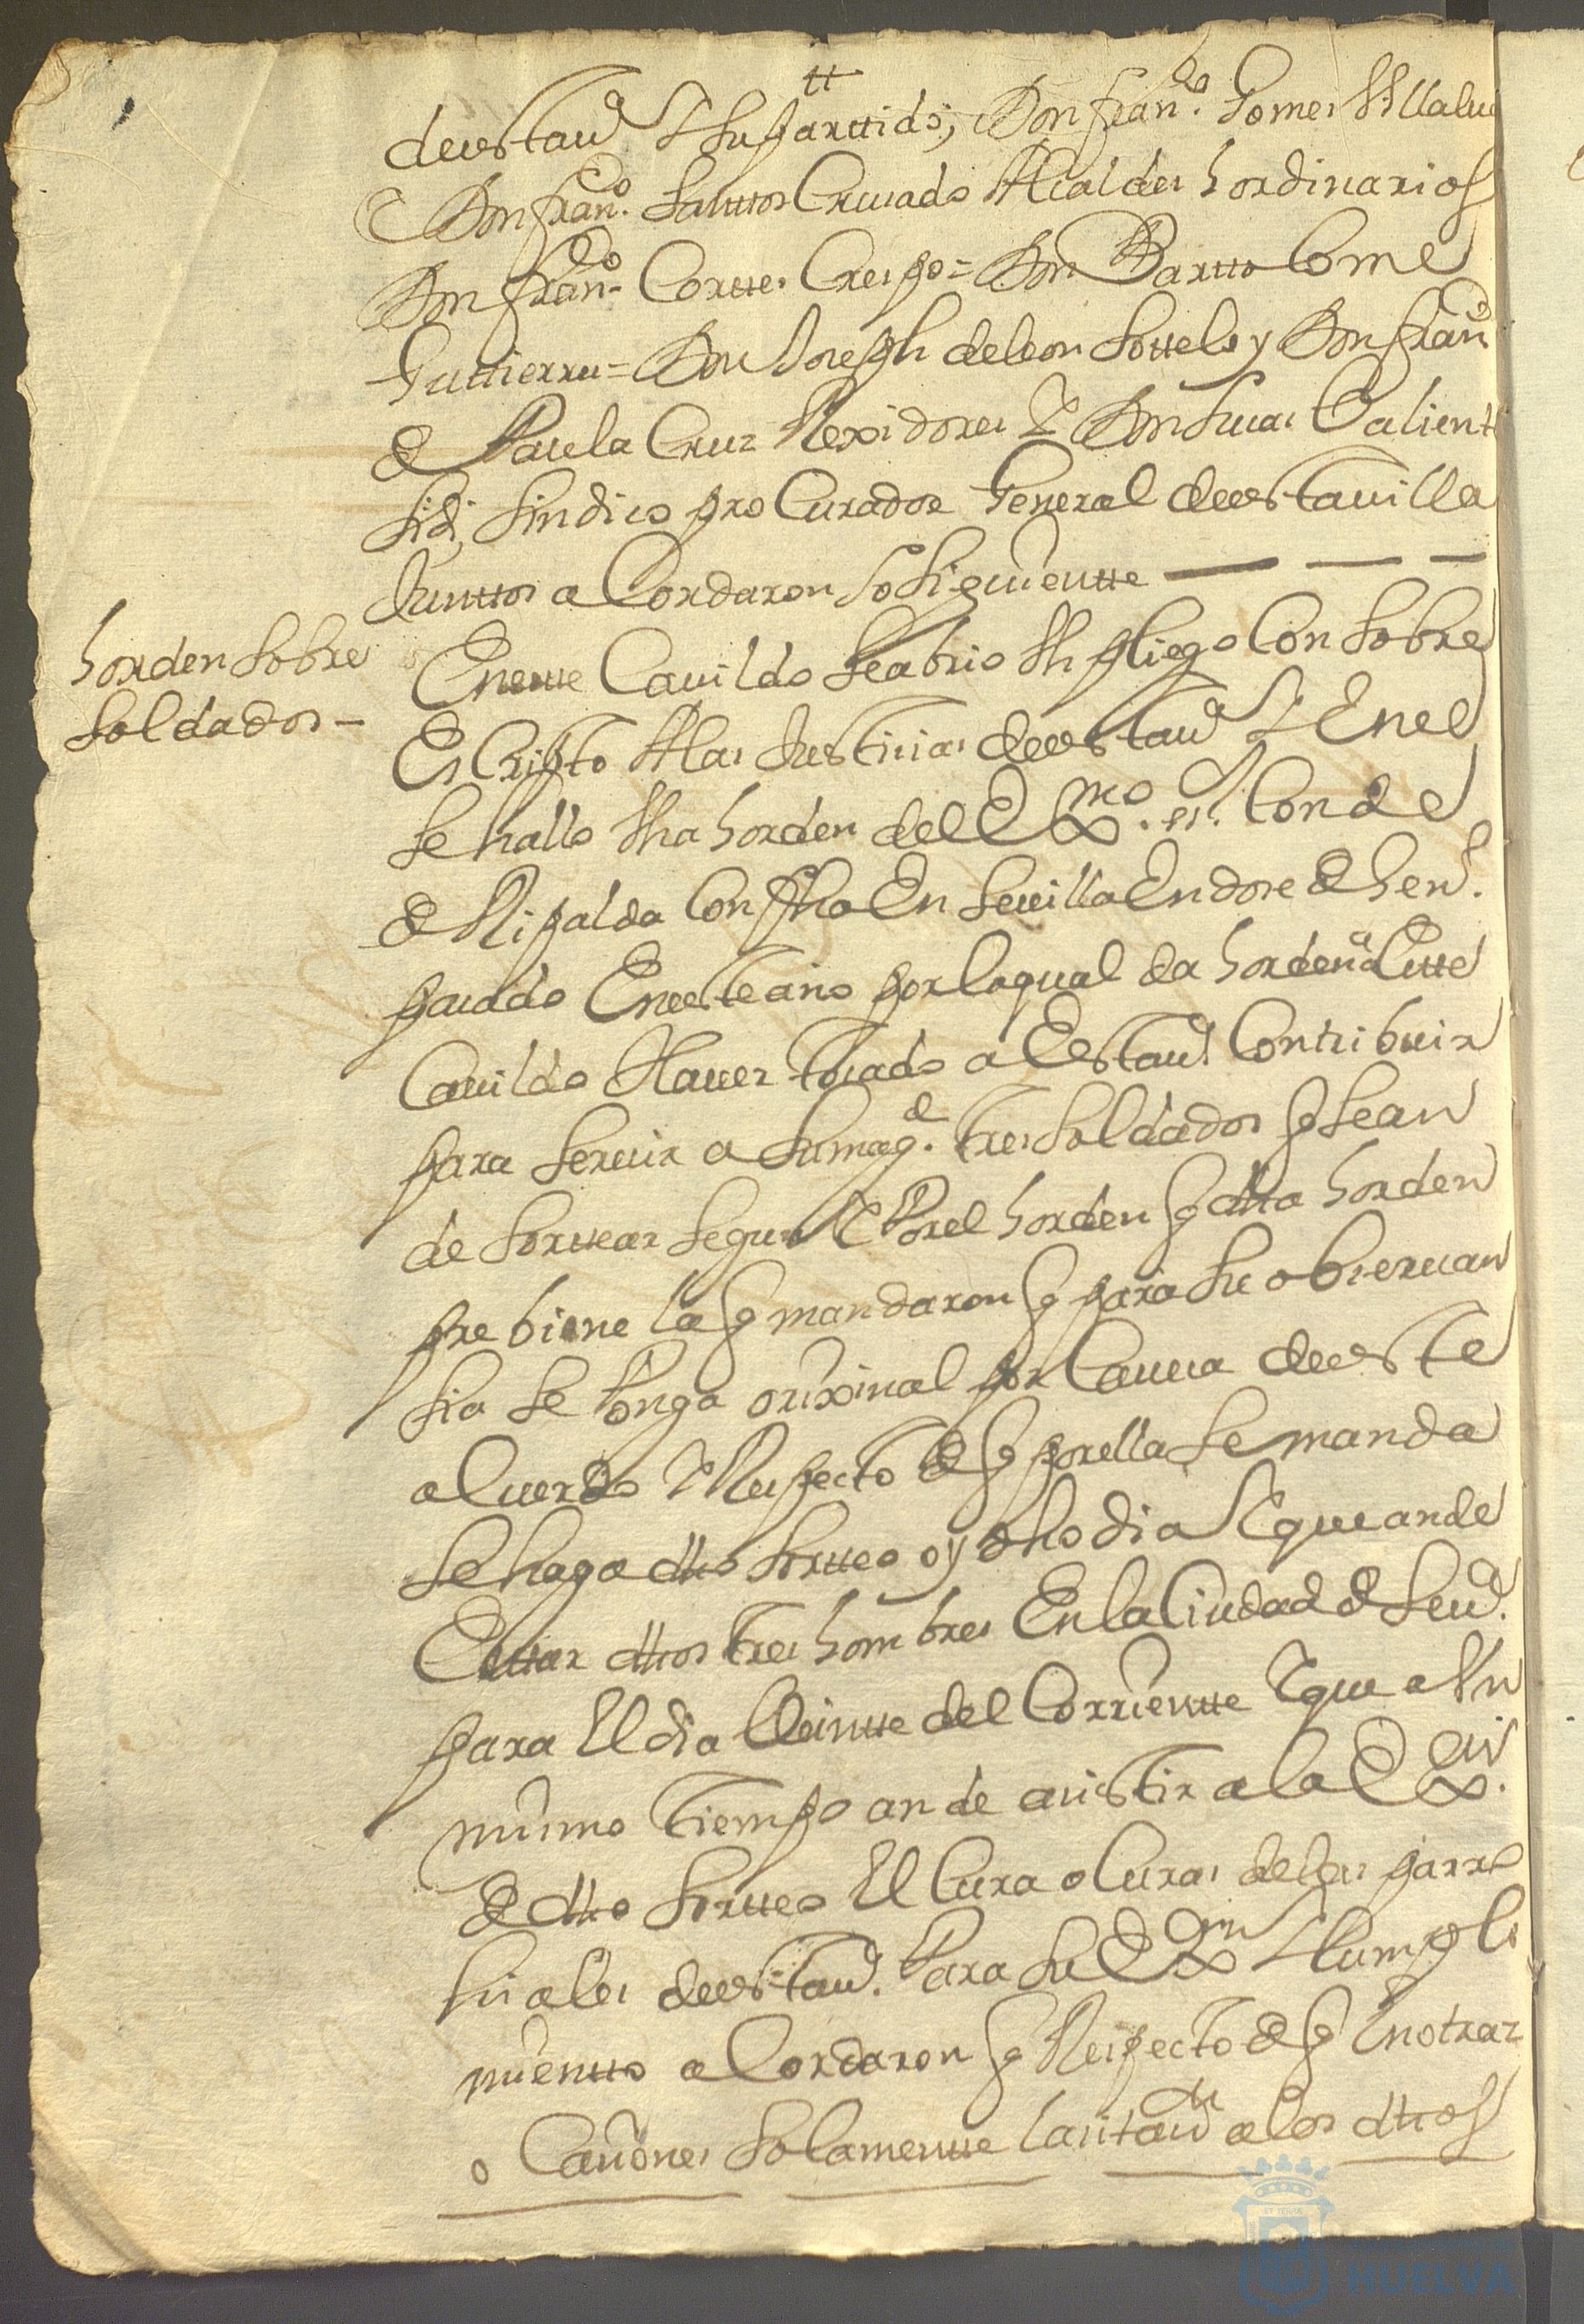 deesta v.ª y su partido, Don fran.co Gomez Villalua
Don fran.co Santtos Crusado Alcaldes hordinarios
Don fran.co Corttes Crespo = Don Barttolome
Guttierres = Don Joseph de leon Sottelo y Don fran.co
de Pauela Cruz Rexidores Y Don Luas Valiente
Sidi, Sindico procurador General deesta uilla
Junttos acordaron lo siguientte
horden sobre
soldados –
En este Cauildo se abrio Un pliego con sobre
Escripto Alas Justicias deesta v.ª y En el
se hallo Una horden del Exmo. sr. Conde
de Ripalda con fha En seuilla En dose de hen.º
pasado En este año por la qual da horden a Este
Cauildo Hauer tocado a Esta v.ª Contribuir
para seruir a su mag.d tres soldados q sean
de sorttear segun Y Por el horden q dha horden
prebiene la q mandaron q para su obseruan
sia se Ponga orixinal por Cauesa de este
acuerdo Y Respecto de q por ella se manda
se haga dho sortteo oy dho dia Y que an de
Estar dhos tres hombres En la Ciudad de Seu.ª
para El dia Veintte del Corrientte Y que a Un
mismo tiempo an de asistir a la Exon.
de dho sortteo El Cura o Curas de las parro
quiales deesta v.ª Para su Exon y Cumpli
mientto acordaron q Respecto de q En otras
ocasiones solamentte
a los dhos
HUELVA